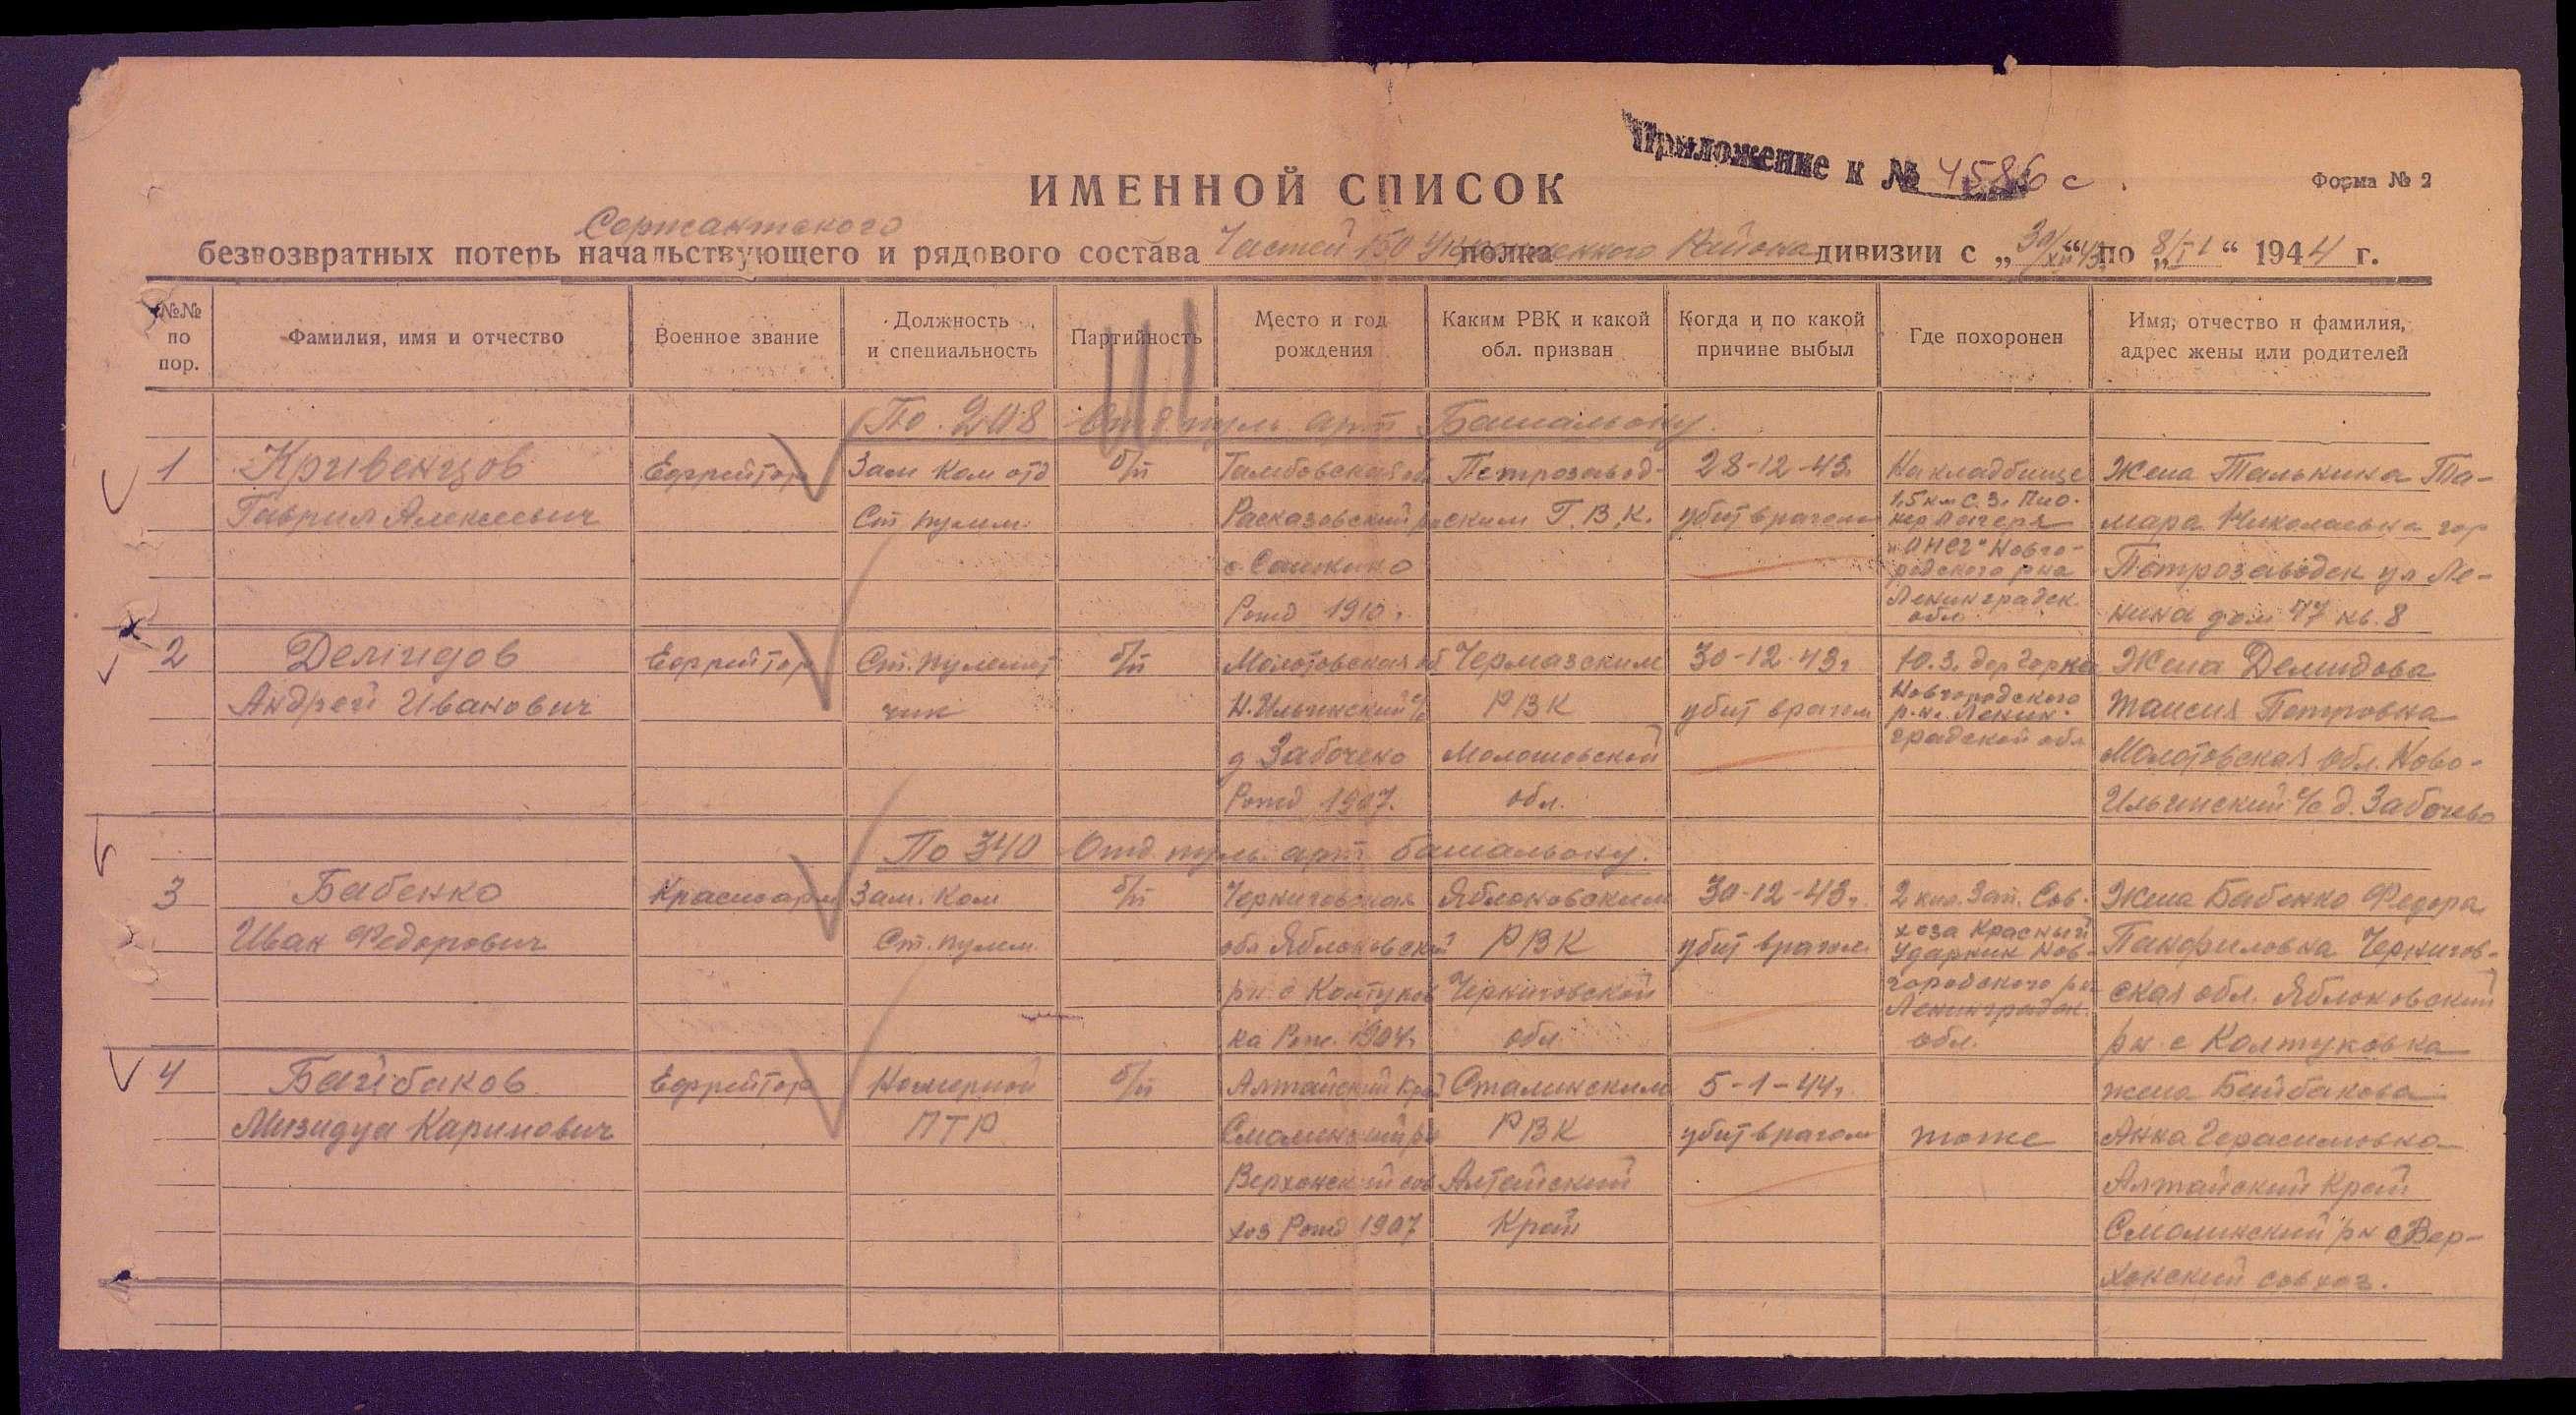 Приложение к № 4586с.
ИМЕННОЙ СПИСОК
Форма № 2
Сержантского
безвозвратных потерь начальствующего и рядового состава Частей 150 Укрепленного Района полка дивизии с „30/XII 43 “ по „8/I “ 1944 г.
№№ по пор.
Фамилия, имя и отчество
Военное звание
Должность и специальность
Партийность
Место и год рождения
Каким РВК и какой обл. призван
Когда и по какой причине выбыл
Где похоронен
Имя, отчество и фамилия, адрес жены или родителей
По пуль арт Батальону.
1 Кривенцов Ефрейтор Зам Ком отд б/п Тамбовская об Петрозавод- 28-12-43г. На кладбище Жена Талькина Та-
Гаврил Алексеевич Ст пулем. Расказовский рн ским Г.В.К. убит врагом 1,5 км С.З. Пио- мара Николаевна гор
нер лагеря
Новго- Петрозаводск ул Ле-
родского р на
Рожд 1910г. Ленинградск. нина дом 47 кв. 8
обл.
2 Демидов Ефрейтор Ст. пулемет б/п Молотовская об Чермазским 30-12-43г Ю.З. дер Горка Жена Демидова
Андрей Иванович чик Н.Ильинский РВК убит врагом Новгородского Таисия Петровна
р.н. Ленин-
д Забочево Молотовской градской обл Молотовская обл. Ново-
Рожд 1907. обл. Ильинский д. Забочево
По 340 Отд пуль арт батальону.
3 Бабенко Красноарм Зам. Ком б/п Черниговская Яблоновским 30-12-43г. 2 км. Зап. Сов- Жена Бабенко Федора
Иван Федорович Ст. пулем. обл Яблоновский РВК убит врагом хоза Красный Панфиловна Чернигов-
Ударник Нов-
рн с Колтуков Черниговской городского рн ская обл. Яблоновский
Ленинградск.
ка Рож. 1904г. обл обл. рн. с Колтуковка
4 Байбаков Ефрейтор Номерной б/п Алтайский край Сталинским 5-1-44г. жена Байбакова
Каримович ПТР Смолинский рн РВК убит врагом тоже Анна Герасимовна
Верхонский сов Алтайский Алтайский Край
хоз Рожд 1907 Край Смолинский рн с Вер-
хонский совхоз.